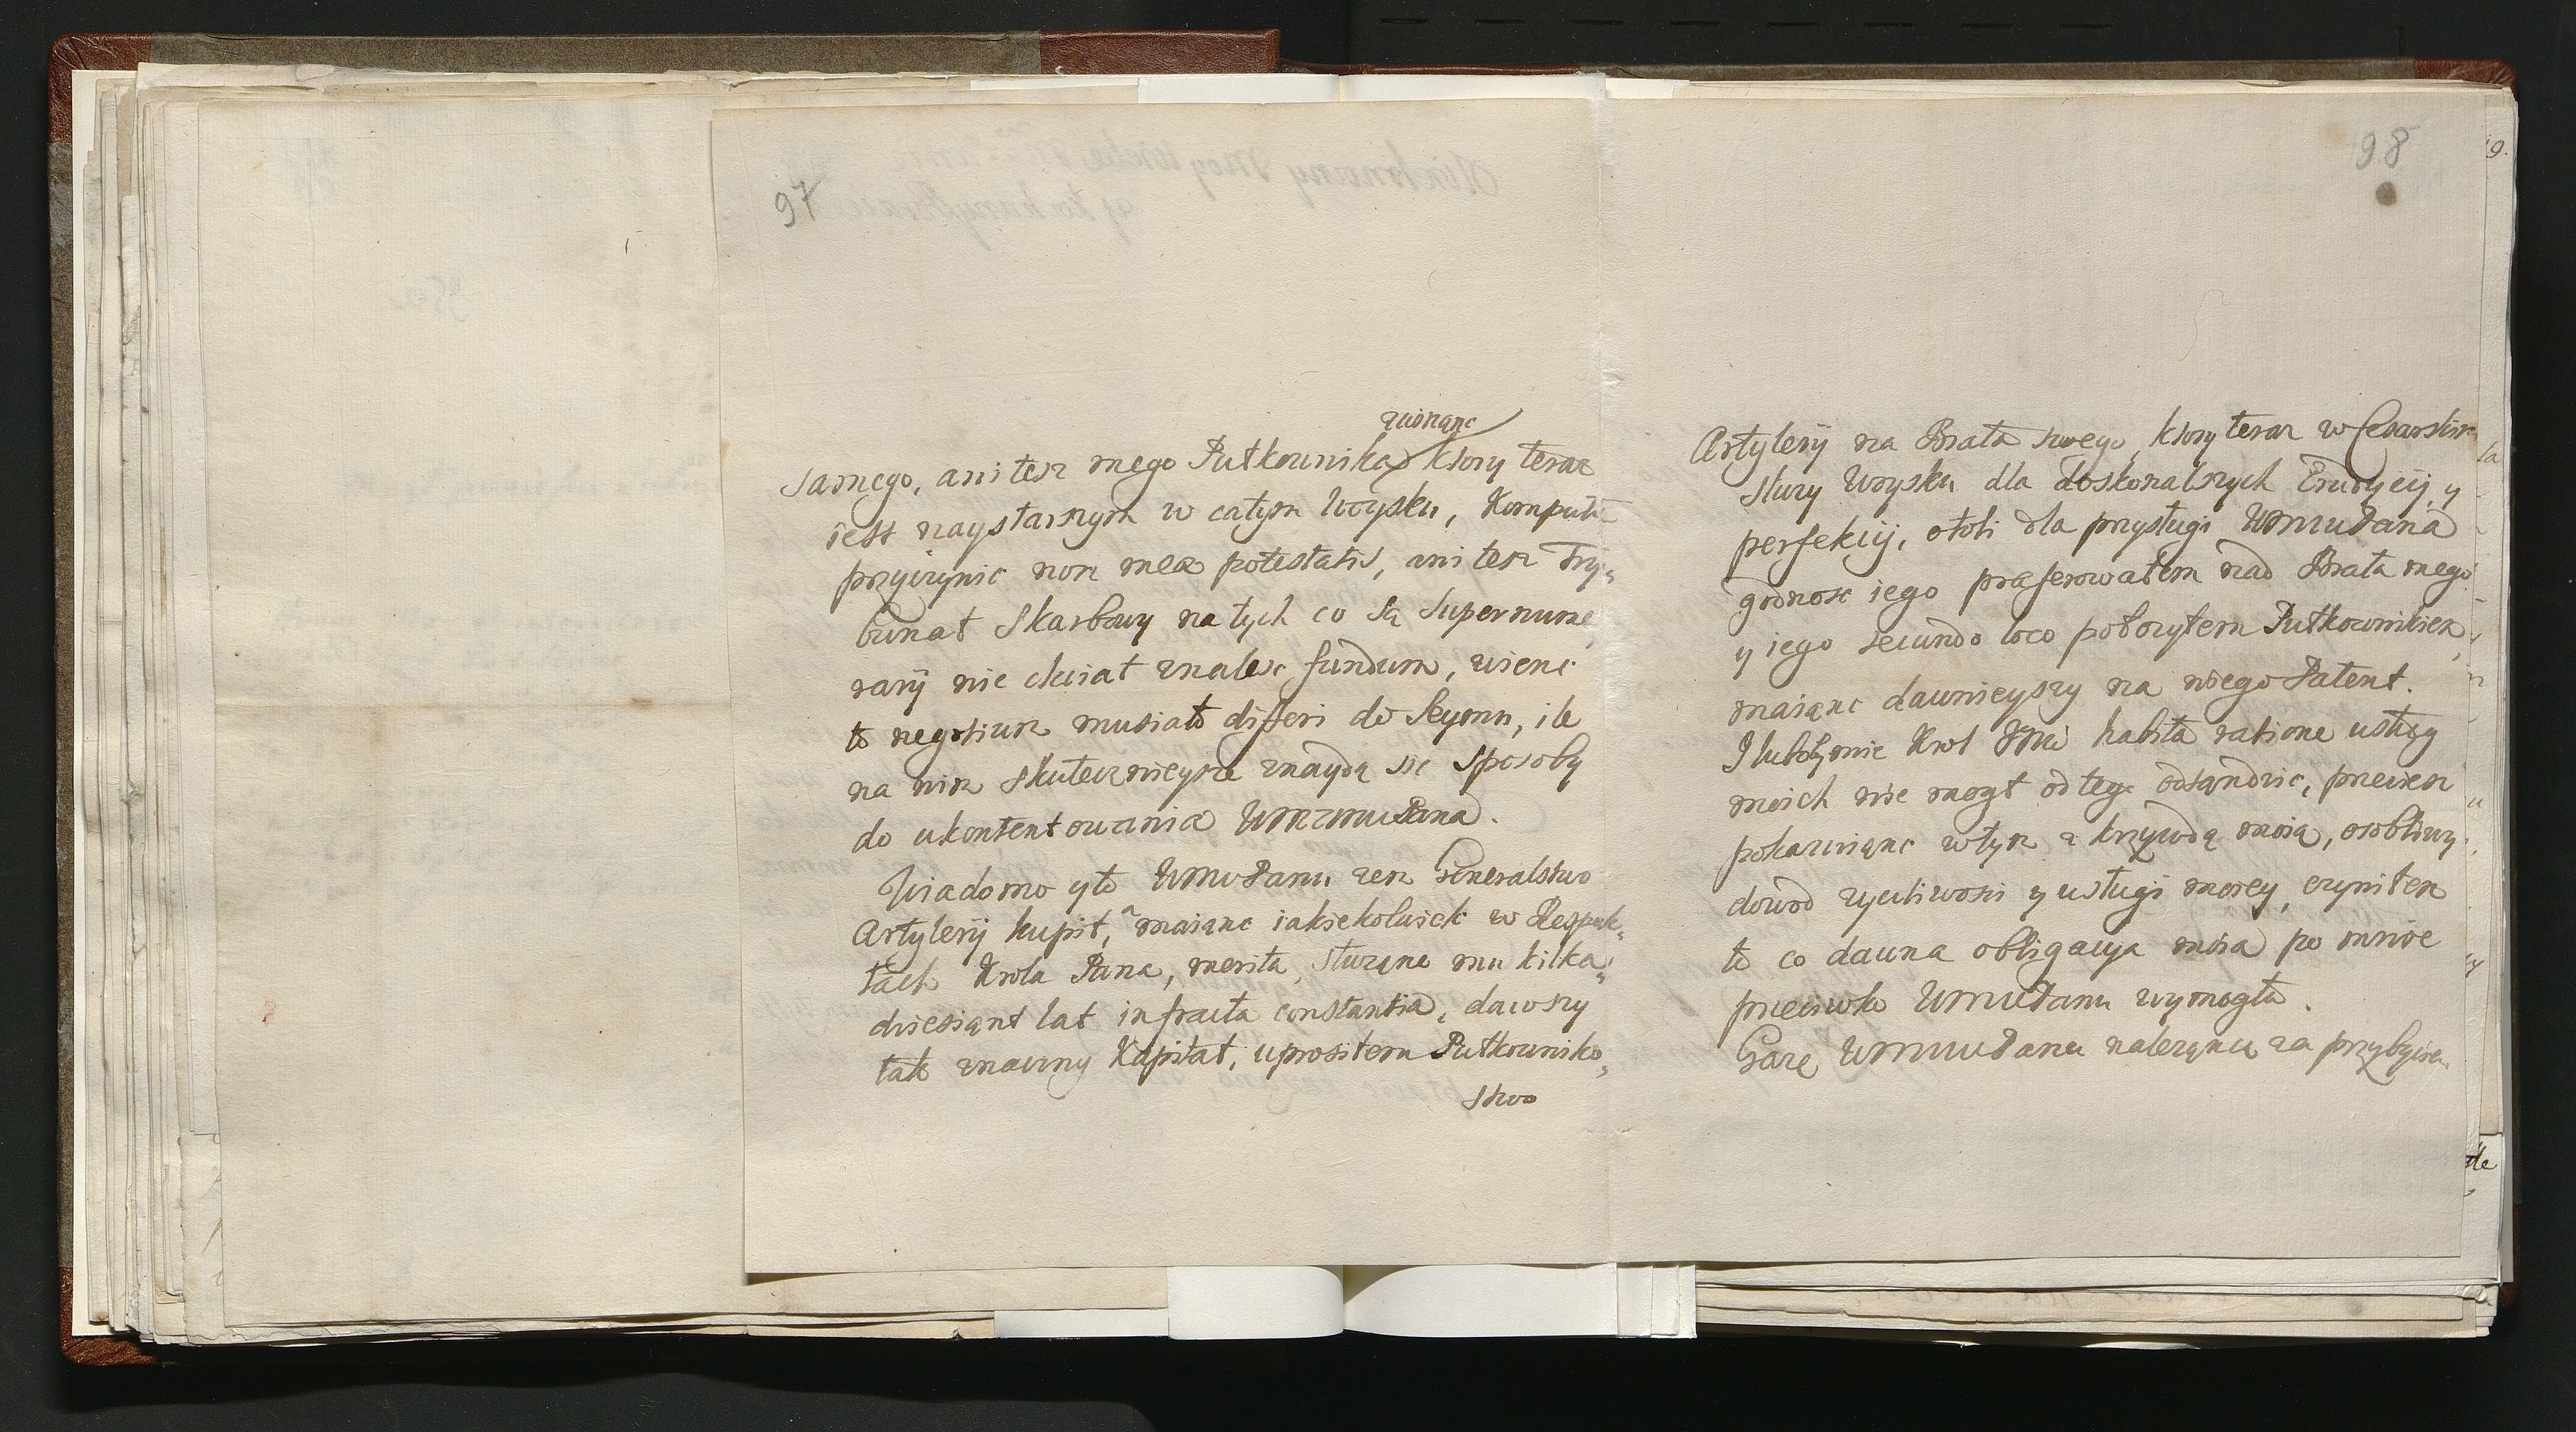 97
zwionąc
Samego, ani tesz mego Pułkownika ktory teraz
iest naystarszym w całym Woysku, Komputu
przyczynic non meæ potestatis, ani tesz Try„
bunał Skarbowy na tych co są Supernume
rarij nie chciał znalesc fundum, wienc
to negotium musiało differi do Seymu, ile
na nim skutecznieysze znaydą sie sposoby
do ukontentowania WMMuPana.
Wiadomo y to WMMuPanu zem Generalstwo
Artyleryi kupił, a maianc iakiekolwiek w Respek„
tach Krola Pana, merita, słuząnc mu kilka„
dziesiąnt lat infracta constantia, dawszy
tak znaczny Kapitał, uprosiłem Pułkowniko„
stwo
98
Artyleryi na Brata swego, ktory teraz w Cesarskim
słuzy Woysku dla doskonalszych Erudycyi y
perfekcyi, otoli dla przysługi WMMuPana
godnosc iego præferowałem nad Brata mego
y iego secundo loco połozyłem Pułkownikiem,
maianc dawnieyszy na niego Patent.
I lubo mie Krol JMci habita ratione usług
moich nie mogł od tego odsąndzic, przeciesz
pokazuiąnc w tym z krzywdą moią, osobliwy
dowod zycliwosci y usługi moiey, czyni tesz
to co dawna obligacya moia po mnie
przeciwko WMMuPanu wymogła.